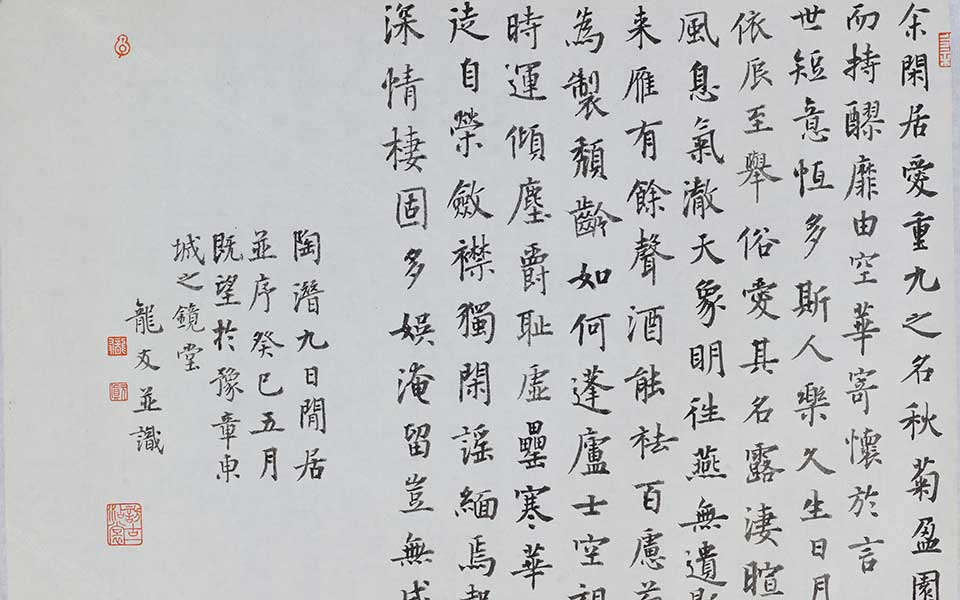 余閑居愛重九之名秋菊盈園
而持醪靡由空華寄懷於言
世短意恆多斯人樂久生日月
依辰至舉俗愛其名露淒暄
風息氣澈天象明往燕無遺
来雁有餘聲酒能祛百慮
為製頹齡如何蓬廬士空視
時運傾塵爵恥虛罍寒華
徒自榮斂襟獨閑謠緬焉
深情棲固多娛淹留豈無成
陶潛九日閒居
並序癸巳五月
既望於豫章東
城之鏡堂
龍友並識